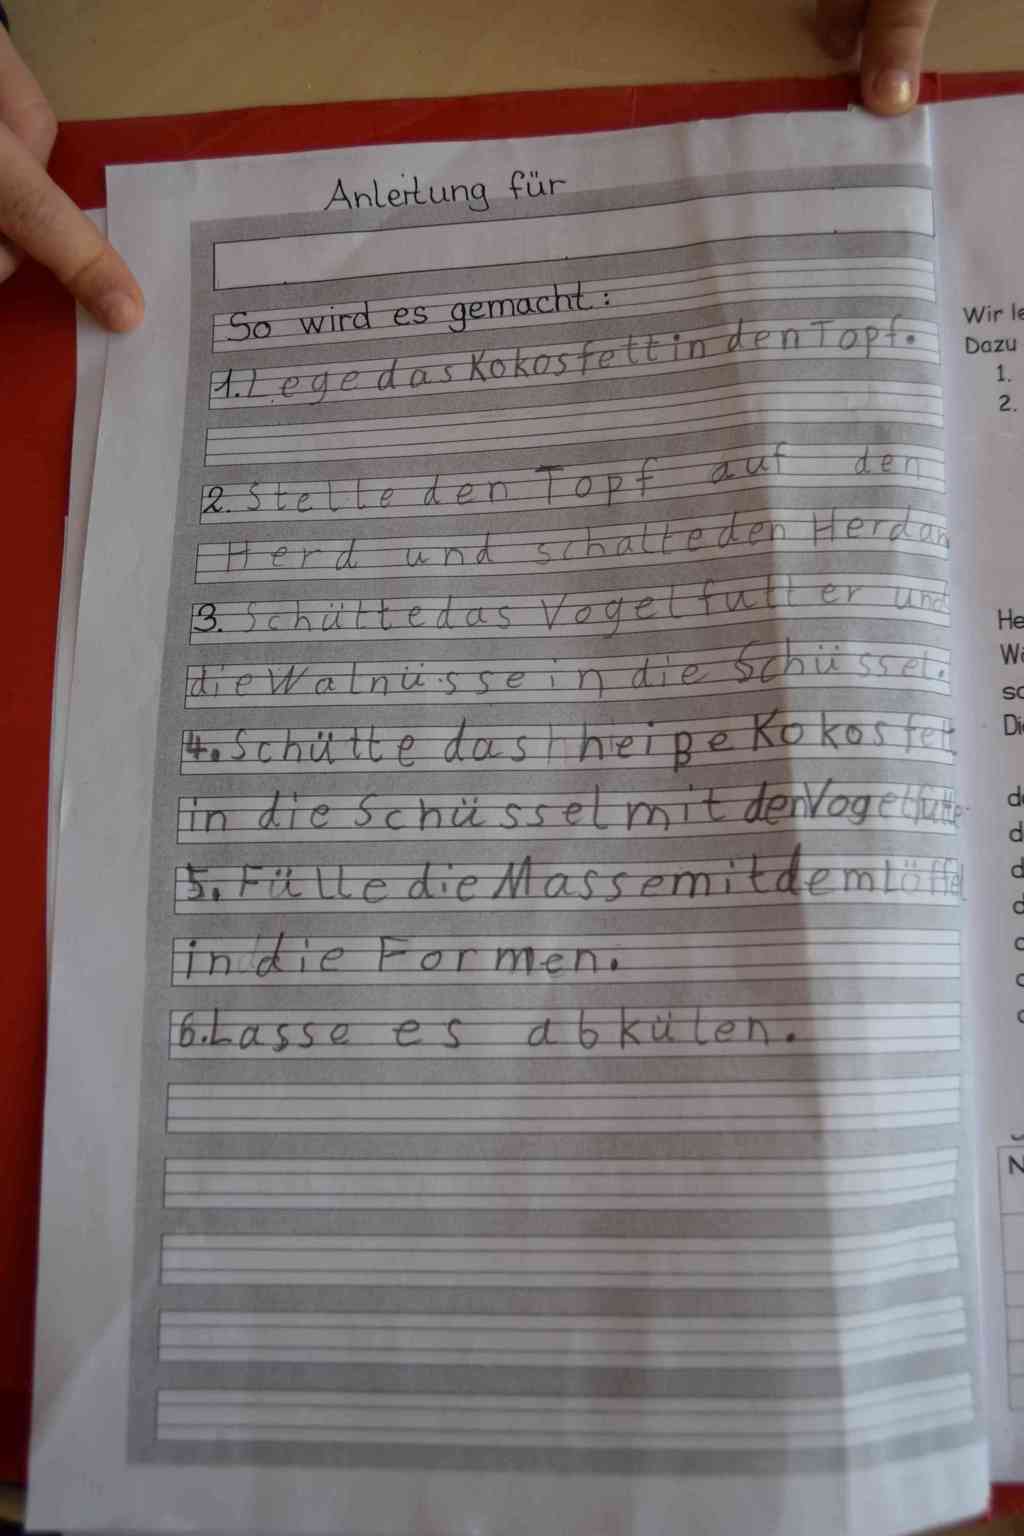 Anleitung für
So wird es gemacht:
1. Lege das Kokosfett in den Topf.
2. Stelle den Topf auf den
Herd und schalte den Herd an
3. Schütte das Vogelfutter und
die Walnüsse in die Schüssel.
4. Schütte das heiße Kokosfett
in die Schüssel mit den Vogelfutter
5. Fülle die Masse mit dem Löffel
in die Formen.
6. Lasse es abkülen.
Wir le
Dazu
1.
2.
He
Wa
sc
Die